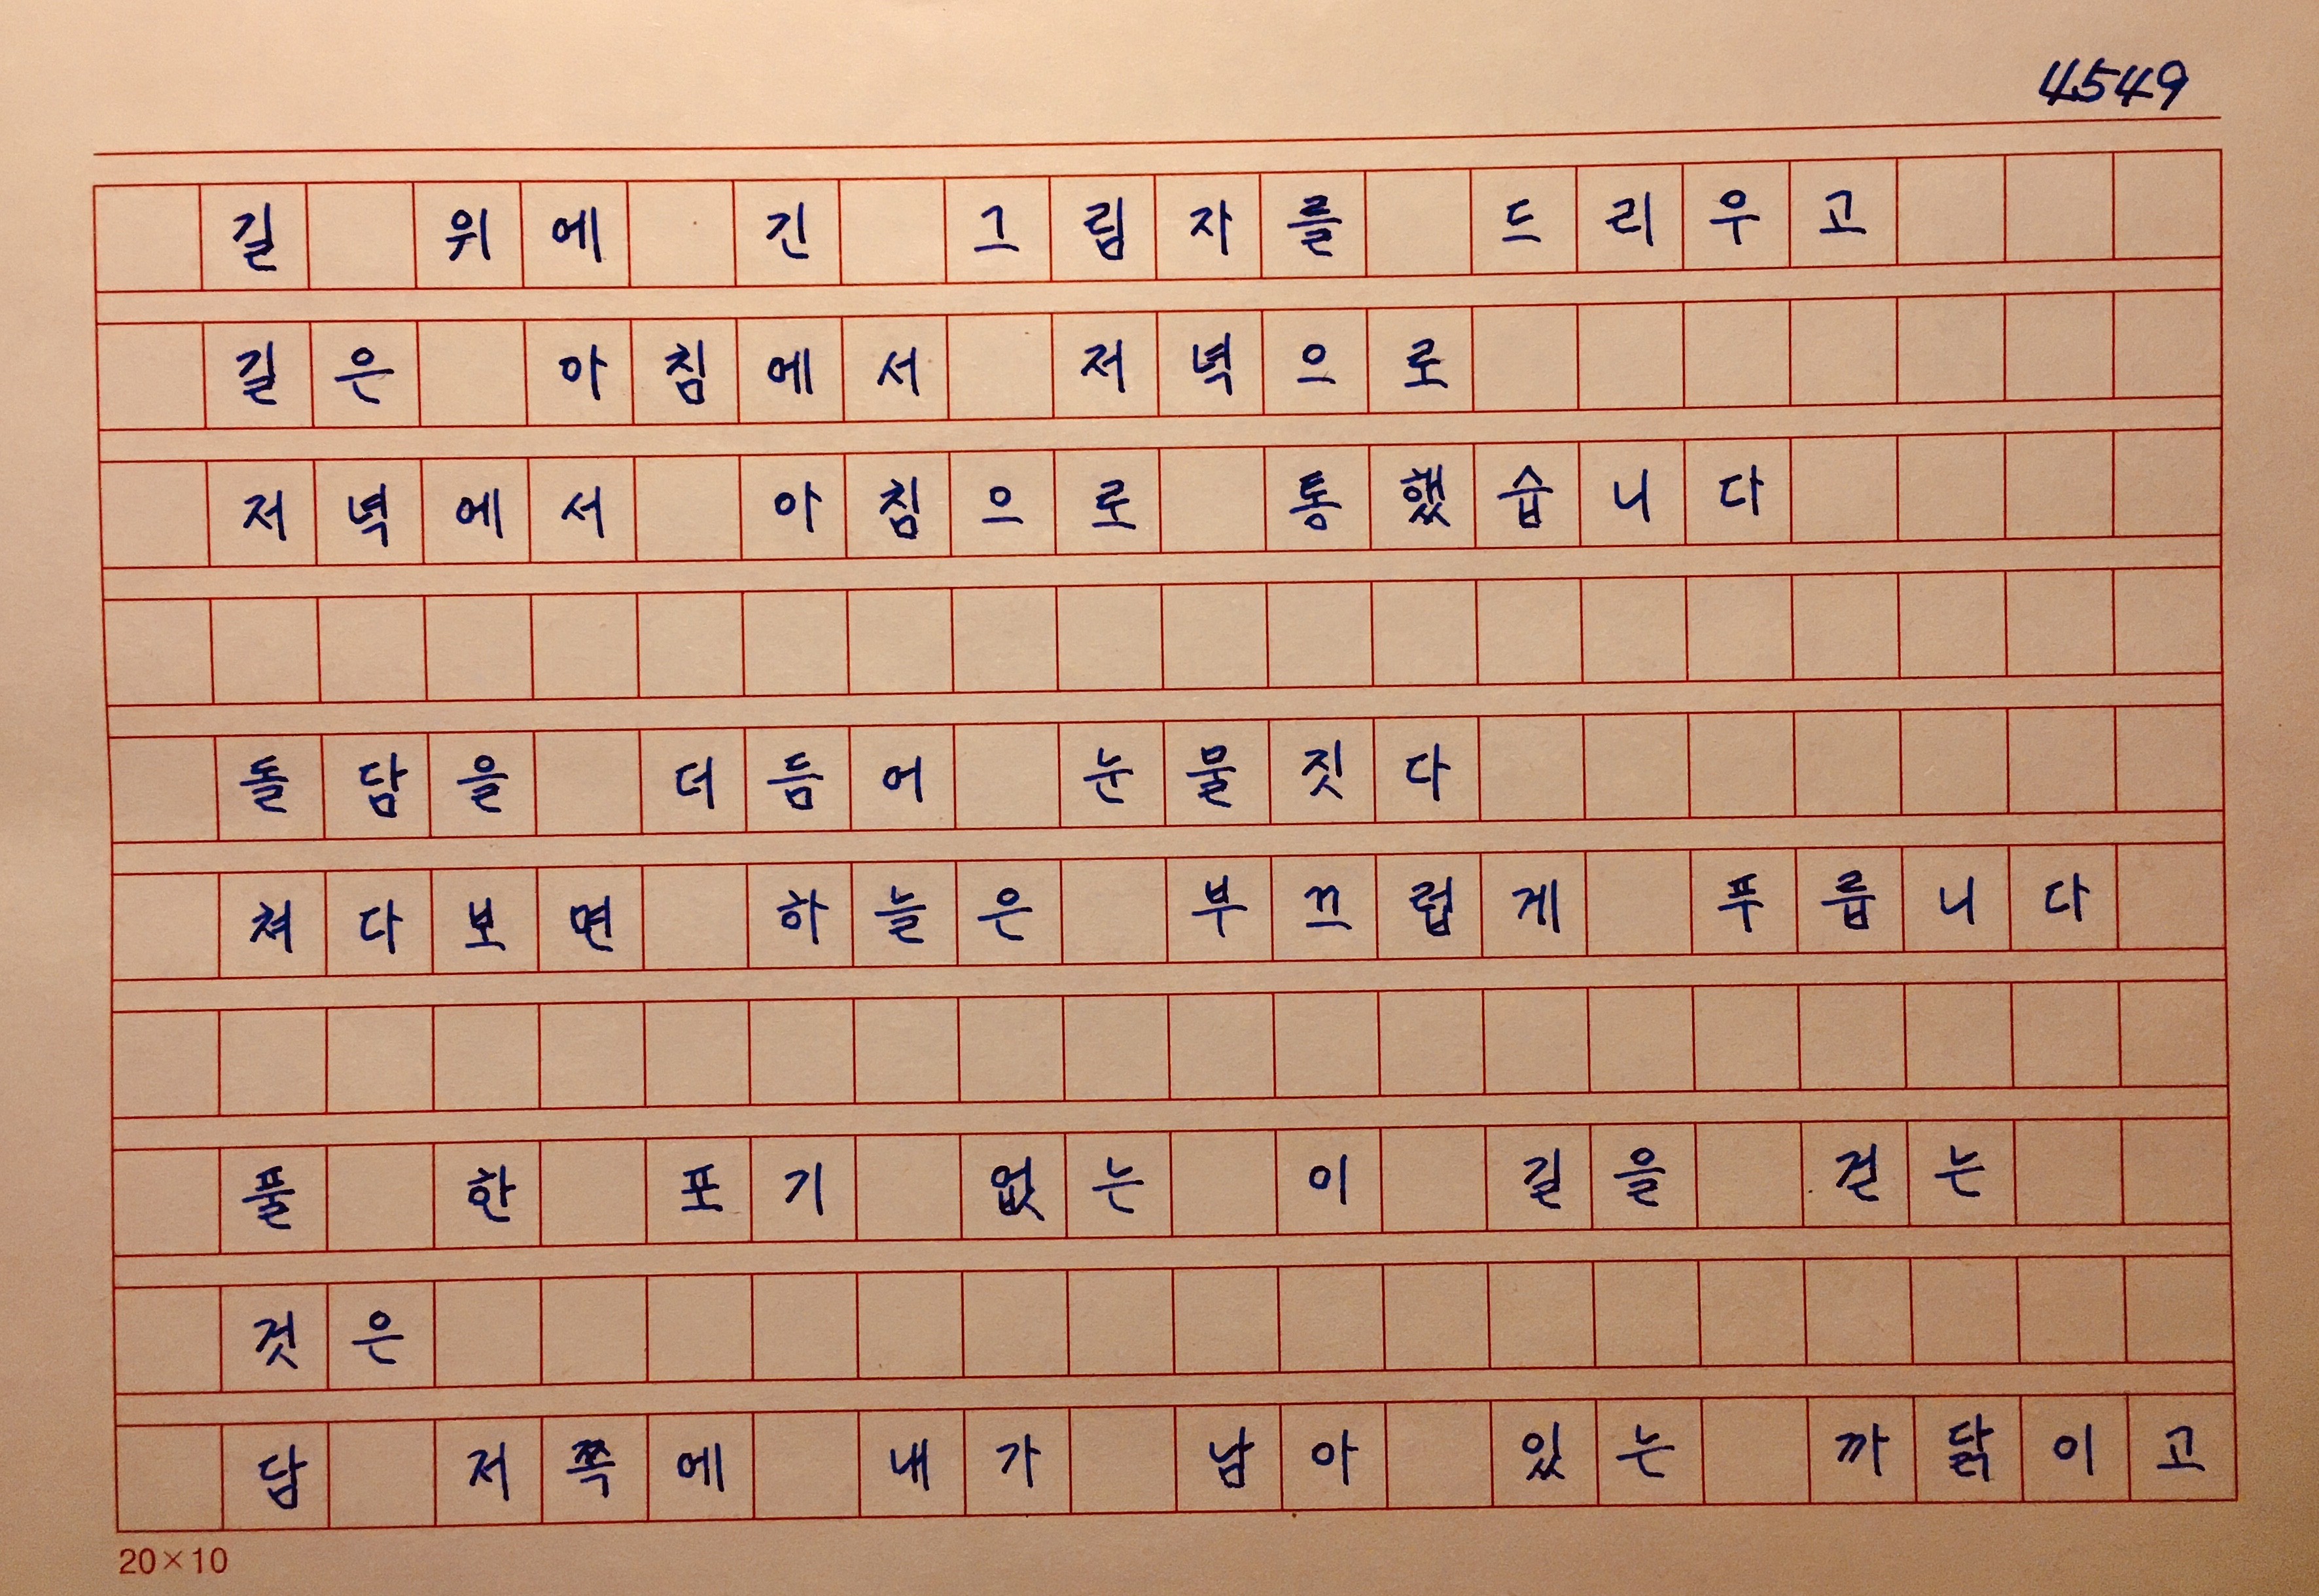 4549
길 위에 긴 그림자를 드리우고
길은 아침에서 저녁으로
저녁에서 아침으로 통했습니다
돌담을 더듬어 눈물짓다
쳐다보면 하늘은 부끄럽게 푸릅니다
풀 한 포기 없는 이 길을 걷는
것은
담 저쪽에 내가 남아 있는 까닭이고
20×10